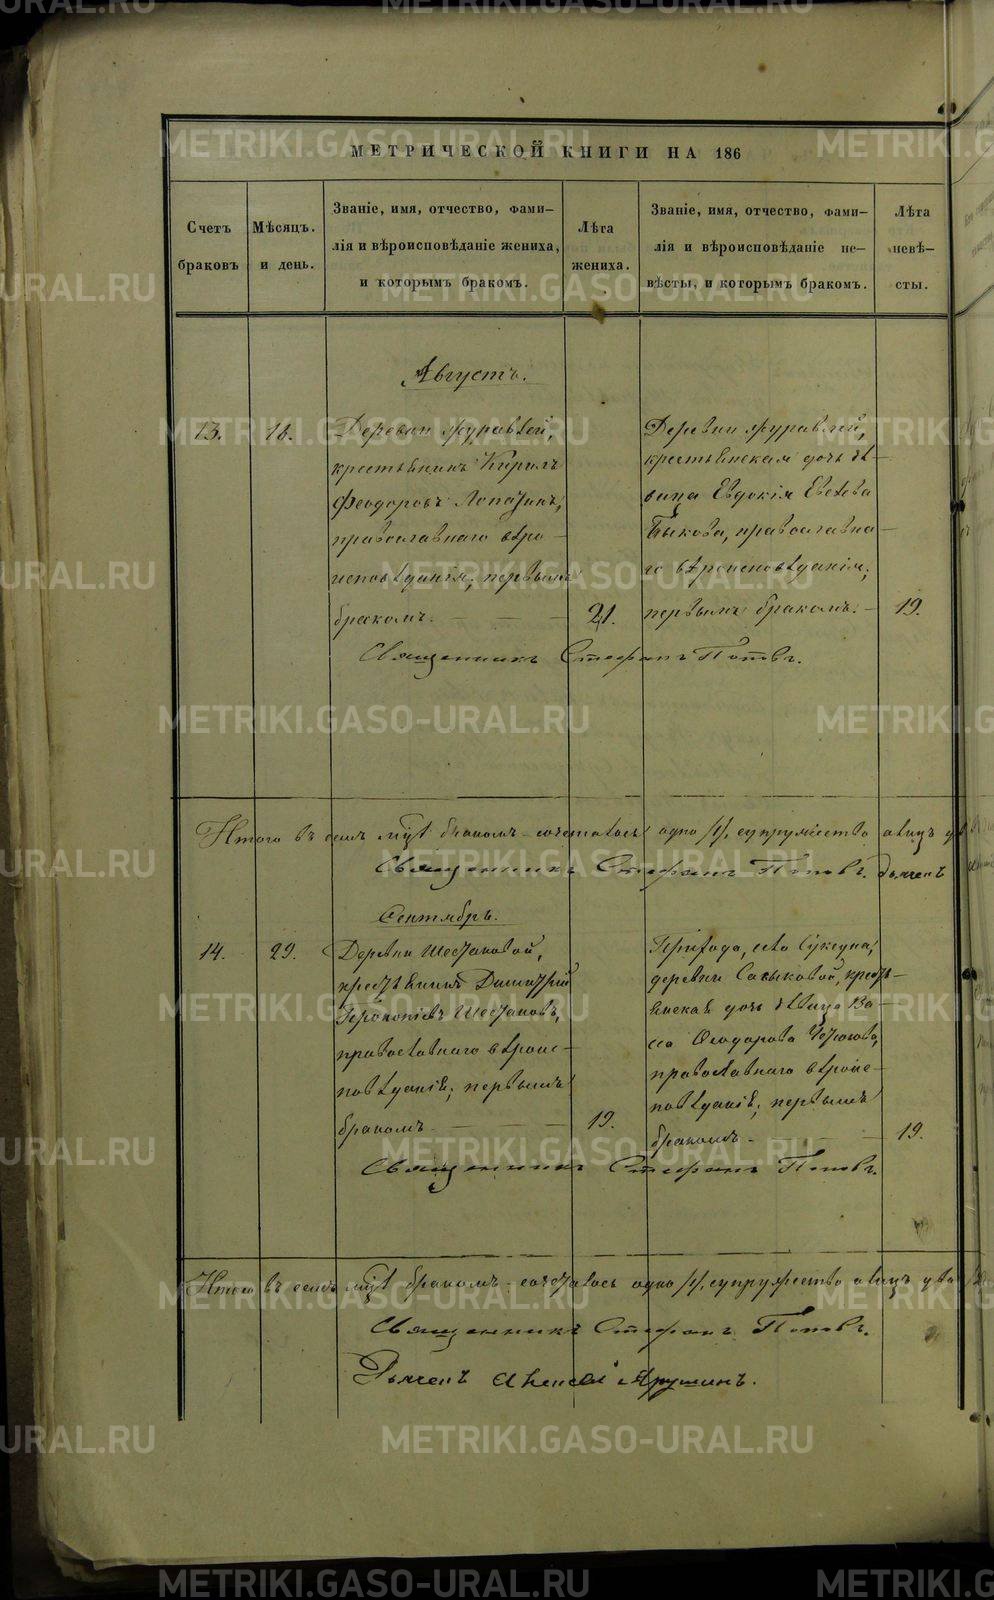 МЕТРИЧЕСКОЙ КНИГИ НА 186
Счетъ браковъ
Мѣсяцъ. и день.
Званіе, имя, отчество, фами-
лія и вѣроисповѣданіе жениха,
и которымъ бракомъ.
Лѣта
жениха.
Званіе, имя, отчество, фами-
лія и вѣроисповѣданіе не-
вѣсты, и которымъ бракомъ.
Лѣта
невѣ-
сты.
Августъ.
13.
18.
Деревни Журавлей,
крестьянинъ Кирилъ
Феодоровъ Лопатинъ,
православнаго вѣро-
исповѣданія, первымъ
бракомъ.
21.
Деревни Журавлей,
крестьянская дочь дѣ-
вица Евдокія Евсѣева
Быкова, православна-
го вѣроисповѣданія,
первымъ бракомъ.
19.
Священникъ Стефанъ Поповъ.
Итого въ семъ м͠цѣ бракомъ сочеталось одно /1/, супружество а лицъ
Священникъ Стефанъ Поповъ. Дьячекъ
Сентябрь.
14.
29.
Деревни Шестаковой,
крестьянинъ Димитрій
Прокопіевъ Шестаковъ,
православнаго вѣроис-
повѣданія; первымъ
бракомъ.
19.
Прихода, села Суксуна,
деревни Сасыковой, кресть-
янская дочь дѣвица Ва-
сса Феодорова
православнаго вѣроис-
повѣданія; первымъ
бракомъ.
19.
Священникъ Стефанъ Поповъ.
Итого въ семъ м͠цѣ бракомъ сочеталось одно /1/, супружество а лицъ два
Священникъ Стефанъ Поповъ.
Дьячекъ Алексѣй Ярушинъ.
METRIKI.GASO-URAL.RU